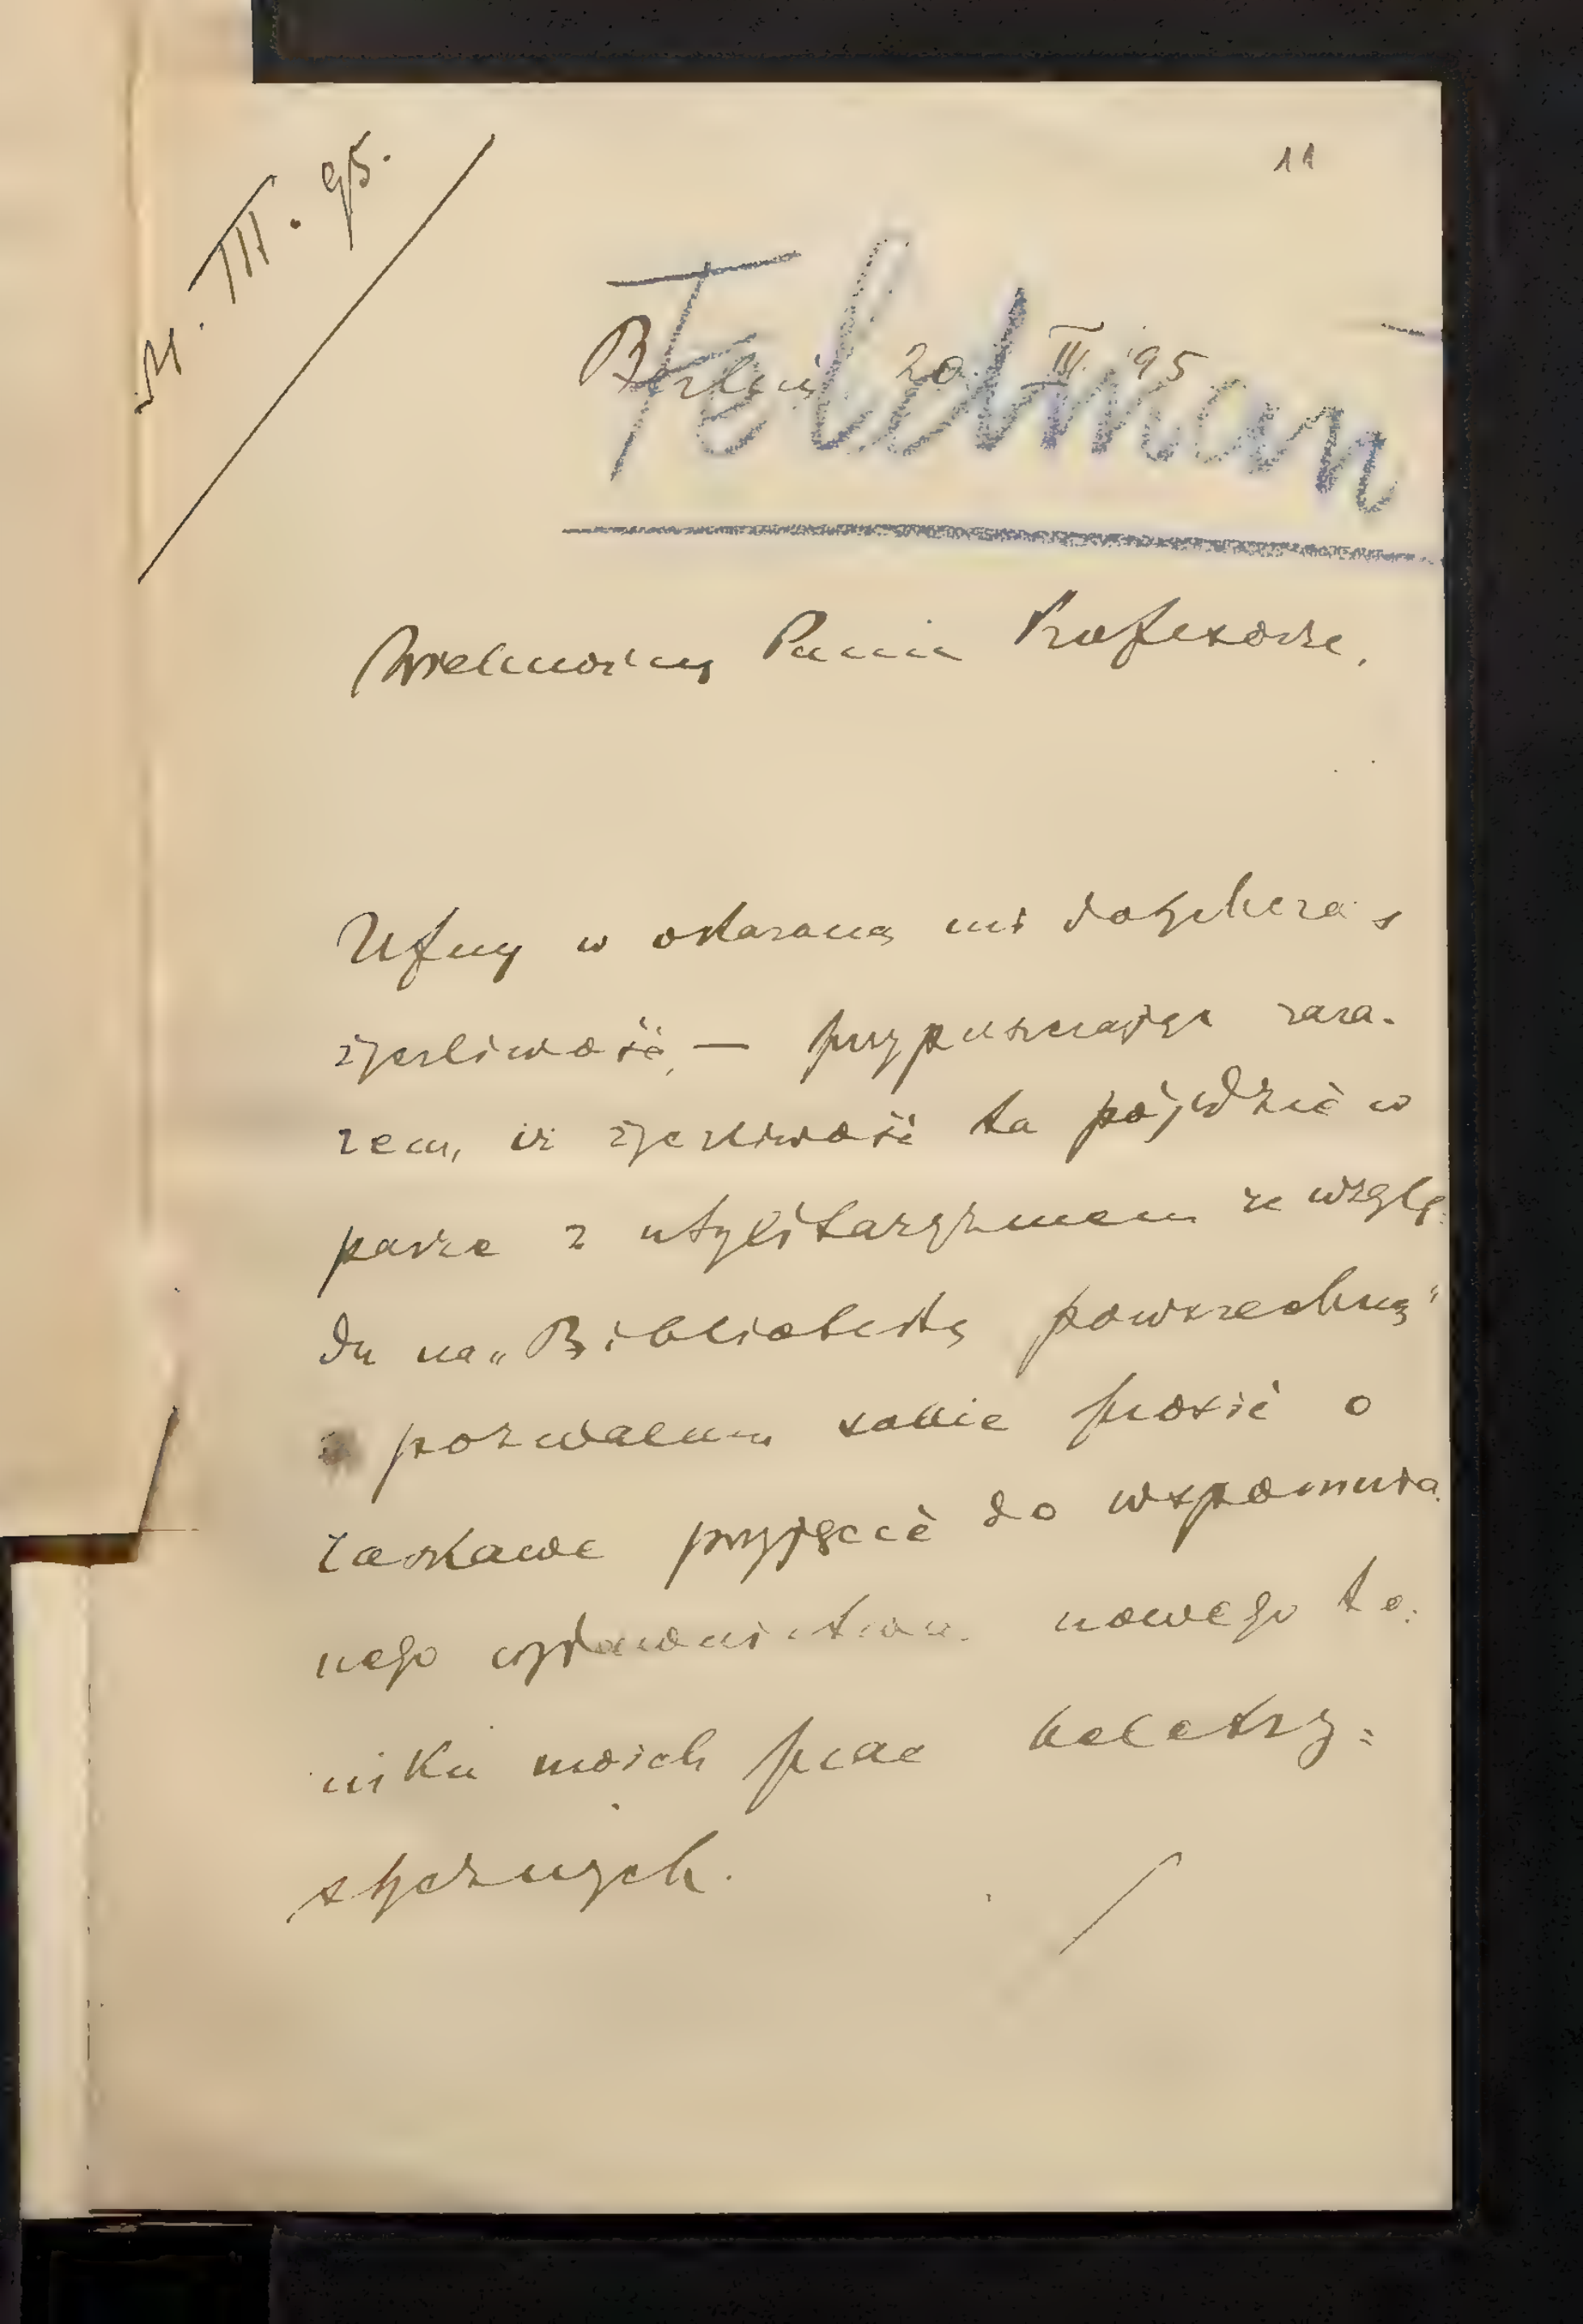 11
III. 95.
Feldman
Berlin 20 III. 95
Wielmożny Panie Profesorze,
Ufny w okazaną mi dotychczas
życzliwość, — przypuszczając zara-
zem, iż życzliwość ta pójdzie w
parze z utylitaryzmem ze wzglę-
du na „Bibliotekę powszechną"
pozwalam sobie prosić o
łaskawe przyjęcie do wspomnia-
nego wydawnictwa nowego to-
miku moich prac beletry=
stycznych.